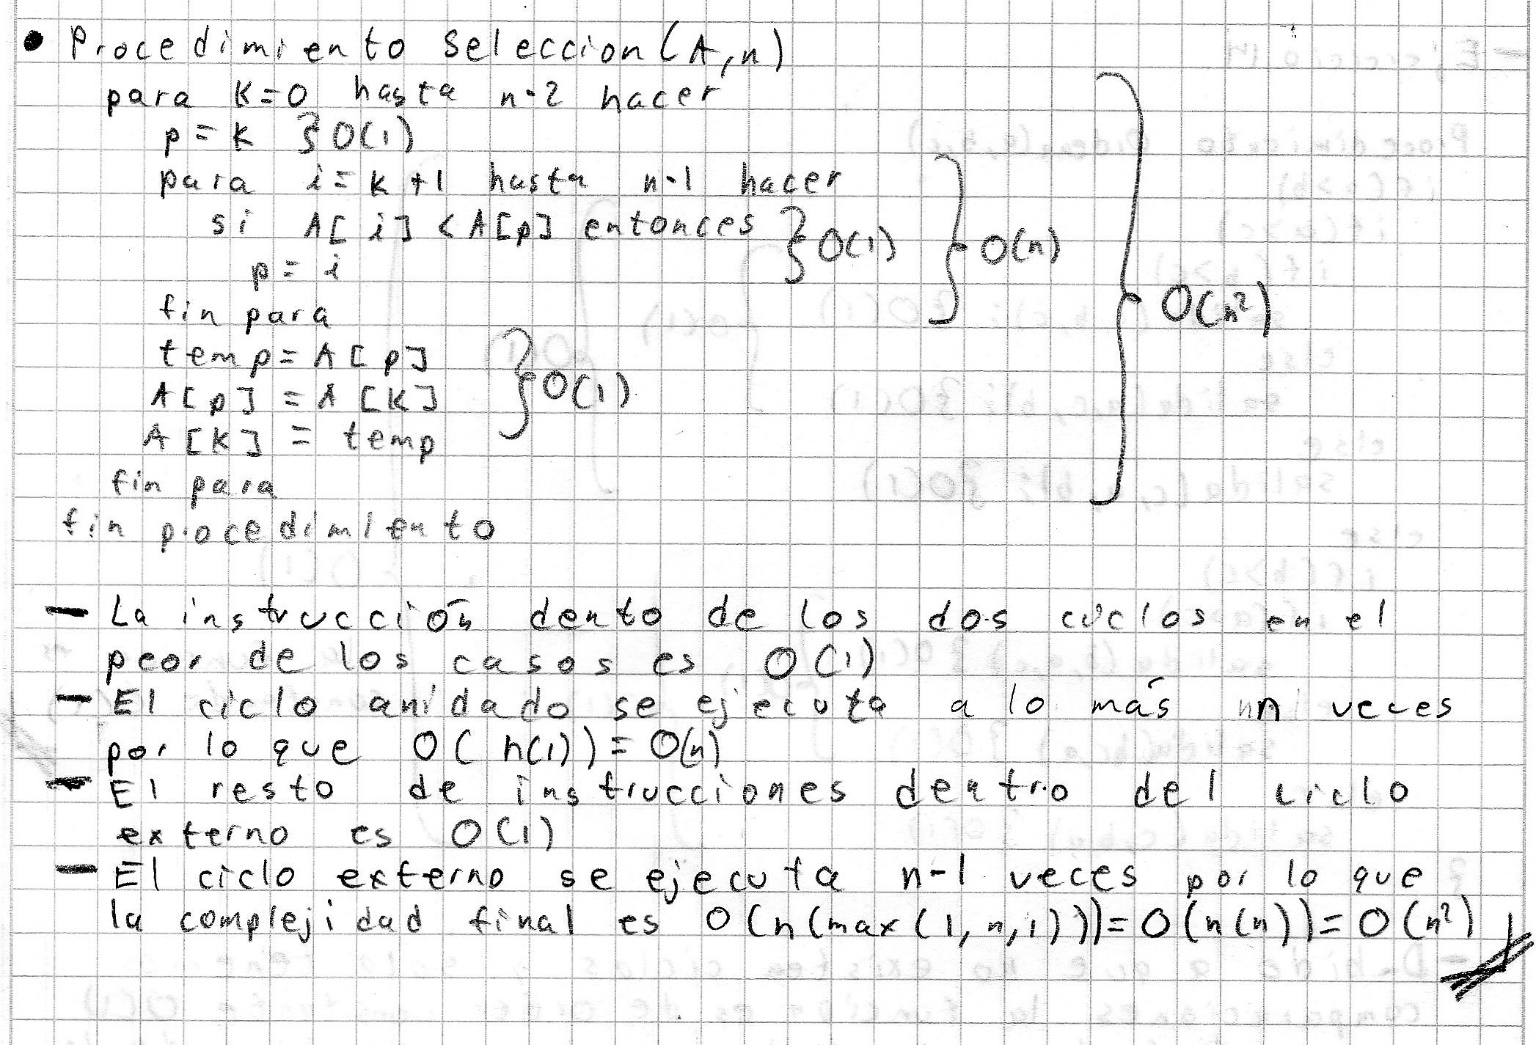 • Procedimiento Seleccion(A,n)
para K=0 hasta n-2 hacer
p=k }O(1)
para i=k+1 hasta n-1 hacer
si A[i]<A[p] entonces }O(1) }O(n) }O(n²)
p=i
fin para
temp=A[p]
A[p]=A[K] }O(1)
A[K]=temp
fin para
fin procedimiento
— La instrucción dento de los dos ciclos en el
peor de los casos es O(1)
— El ciclo anidado se ejecuta a lo más n veces
por lo que O(n(1))=O(n)
— El resto de instrucciones dentro del ciclo
externo es O(1)
— El ciclo externo se ejecuta n-1 veces por lo que
la complejidad final es O(n(max(1,n,1)))=O(n(n))=O(n²)